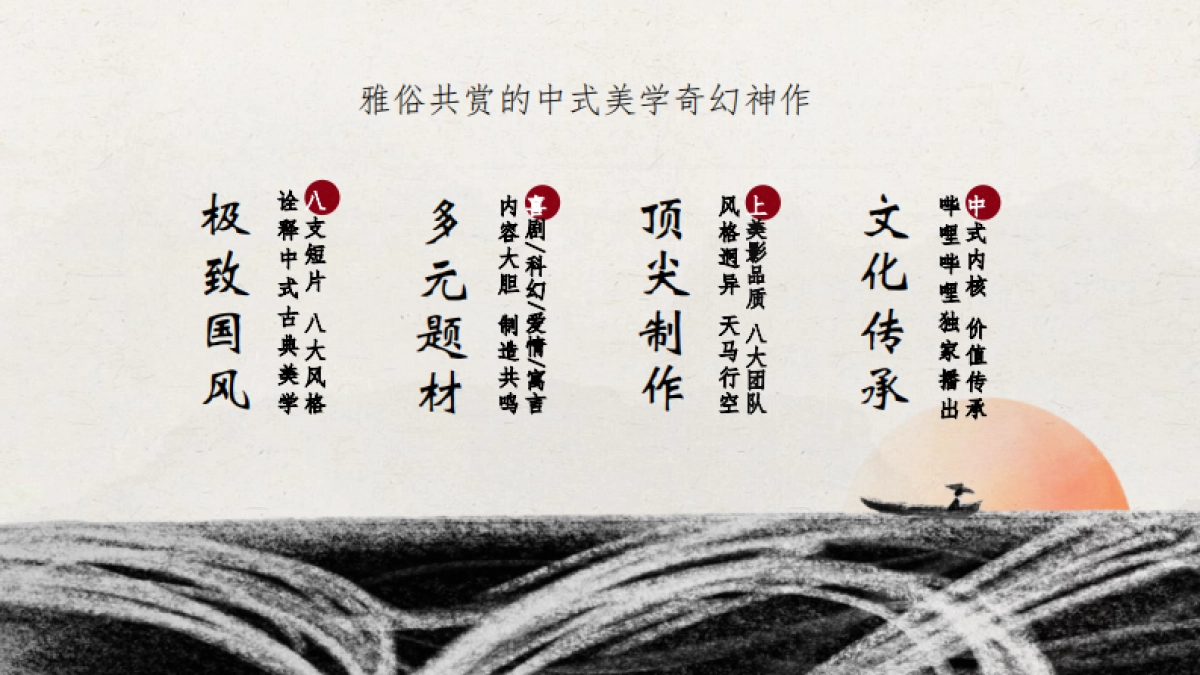 雅俗共赏的中式美学奇幻神作
极致国风
八支短片 八大风格
诠释中式古典美学
多元题材
喜剧/科幻/爱情/寓言
内容大胆 制造共鸣
顶尖制作
上美影品质 八大团队
风格迥异 天马行空
文化传承
中式内核 价值传承
哔哩哔哩独家播出